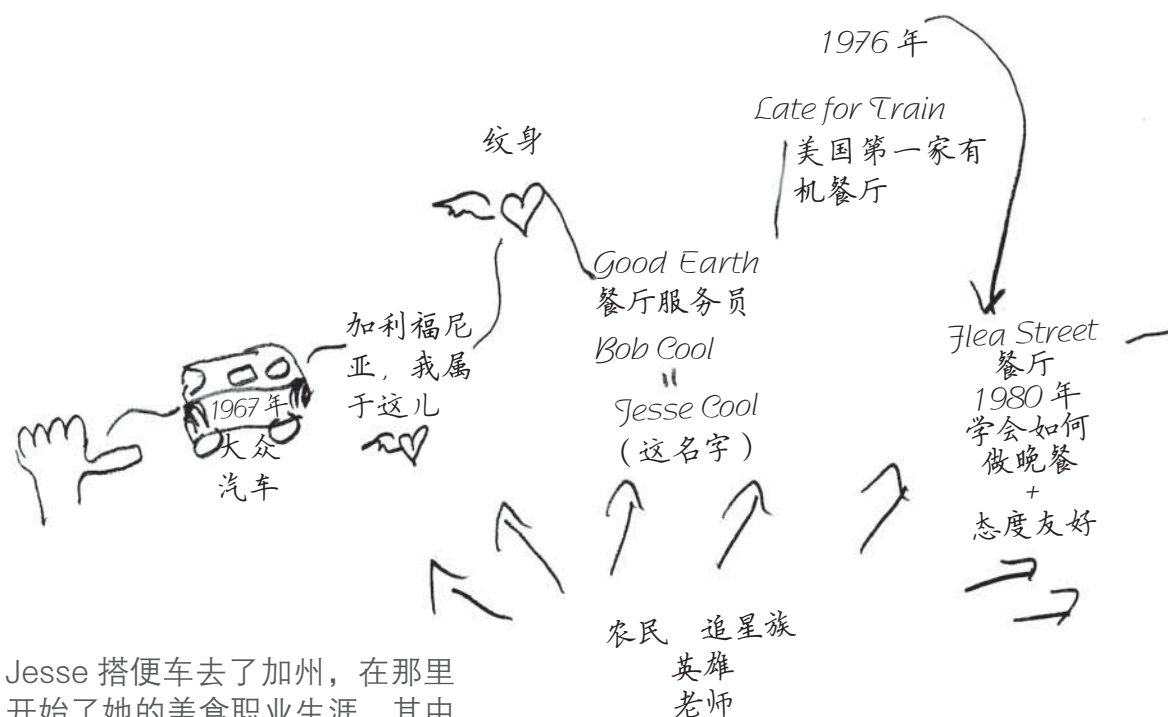 1976 年
Late for Train
美国第一家有
机餐厅
纹身
Good Earth
餐厅服务员
Bob Cool
"
Jesse Cool
（这名字）
加利福尼
亚，我属
于这儿
1967 年
大众
汽车
Flea Street
餐厅
1980 年
学会如何
做晚餐
+
态度友好
农民 追星族
英雄
老师
Jesse 搭便车去了加州，在那里
开始了她的美食职业生涯，其中